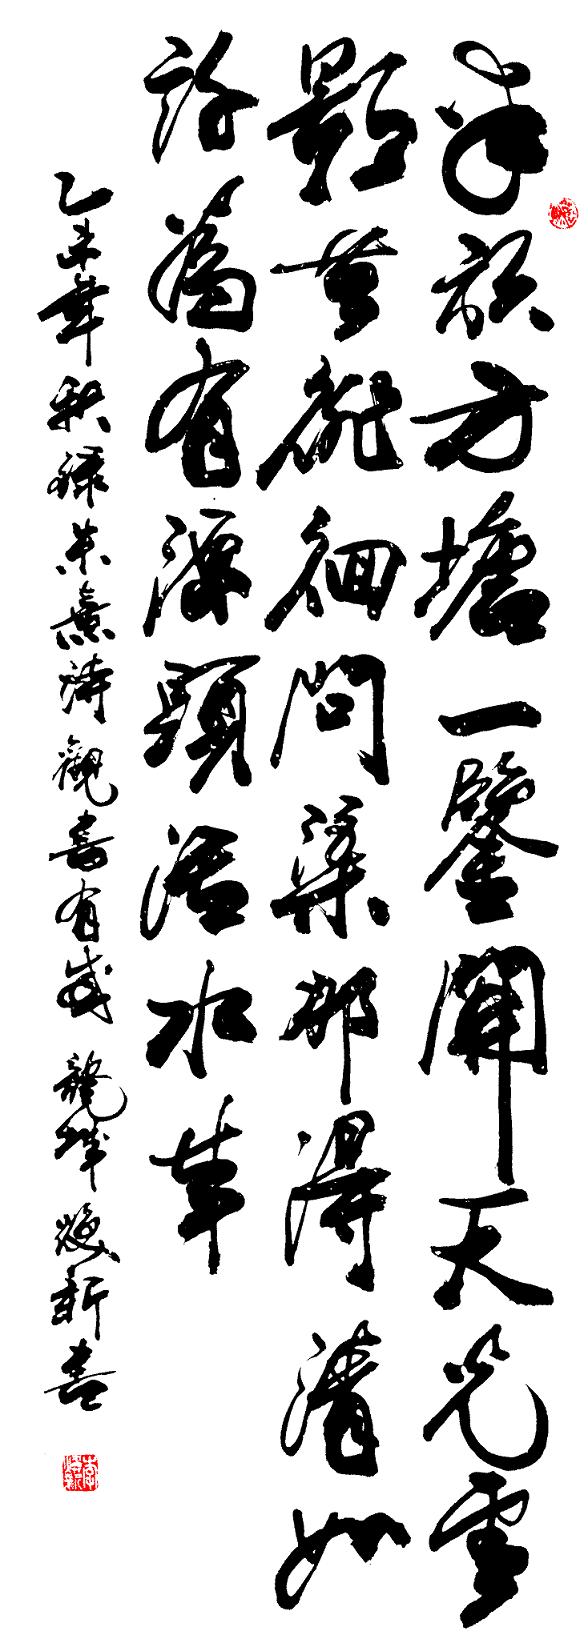 半畝方塘一鑒開天光雲
影共徘徊問渠那得清如
許為有源頭活水來
乙未年秋錄朱熹詩觀書有感 龍城煥新書